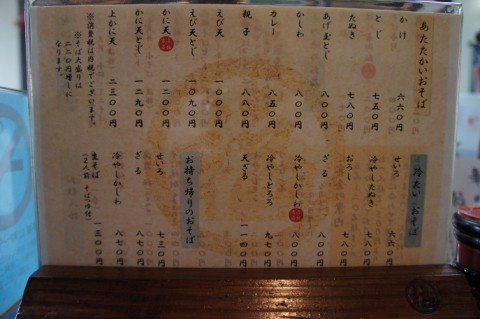 あたたかいおそば
かけ 六六〇円
とじ 七五〇円
たぬき 七八〇円
あげ玉とじ 八〇〇円
かしわ 八〇〇円
カレー 八五〇円
親子 八八〇円
えび天 一〇〇〇円
えび天とじ 一〇九〇円
かに天 一二〇〇円
かに天とじ 一二九〇円
上かに天 二三〇〇円
※そば大盛りは
二二〇円増しに
なります。
※消費税は内税でございます。
冷たいおそば
せいろ 六六〇円
冷やしたぬき 七八〇円
おろし 七八〇円
ざる 八〇〇円
冷やしかしわ 八〇〇円
冷やしとろろ 九七〇円
天ざる 一一四〇円
お持ち帰りのおそば
せいろ 七三〇円
ざる 八七〇円
冷やしかしわ 八七〇円
生そば 一三〇〇円
(2人前 そばつゆ付)